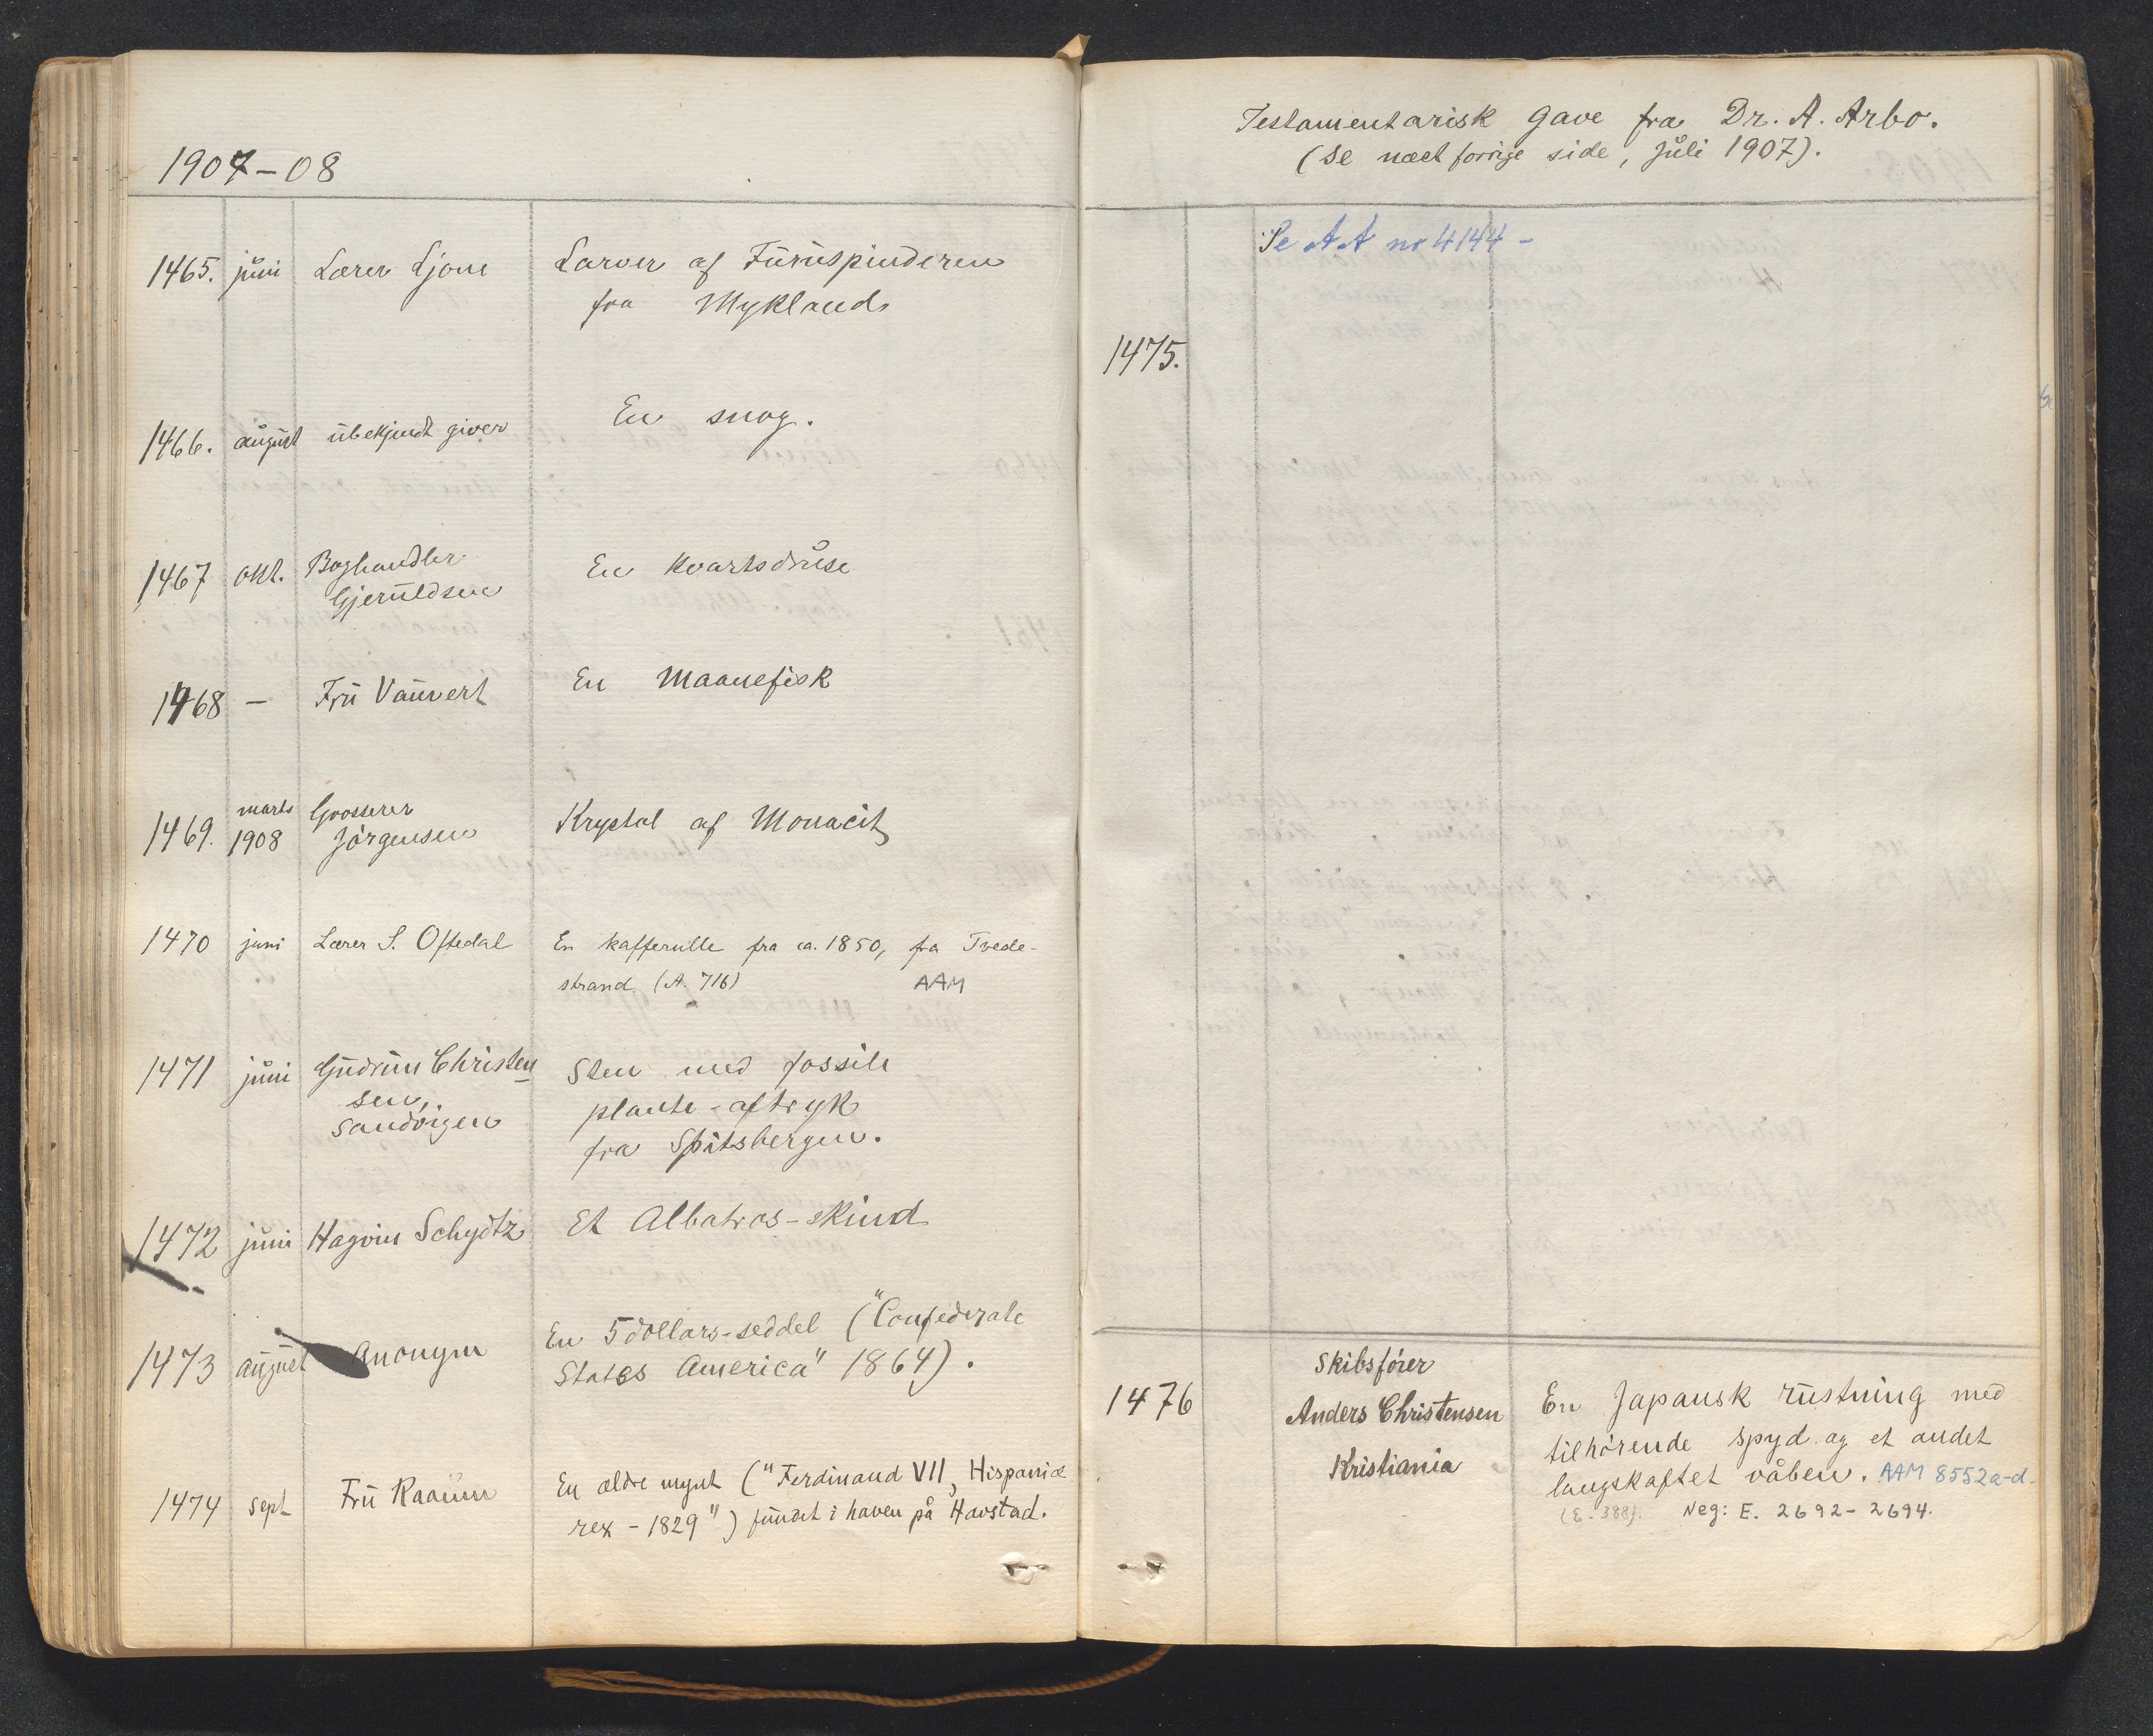 1907-08
1465. juni Lærer Ljone Larver af Furuspinderen
fra Myklands
1466. august ubekjendt giver En snog.
1467 okt. Boghandler En kvartsdruse
Gjeruldsen
1468 - Fru Vauvert En Maanefisk
1469. marts 1908 Grosserer Krystal af Monacit
Jörgensen
1470 juni Lærer S. Oftedal En kafferulle fra ca. 1850, fra Tvede-
strand. (A. 716) AAM
1471 juni Gudrun Christen Sten med fossile
sen, plante-aftryk
Sandvigen fra Spitsbergen.
1472 juni Hagvin Schydtz Et Albatros-skind
1473 august Anonym En 5 dollars-seddel ("Confederate
States America" 1864).
1474 sept Fru Raaum En ældre mynt ("Ferdinand VII, Hispaniæ
rex - 1829") fundet i haven på Havstad.
Testamentarisk Gave fra Dr. A. Arbo.
(Se næst forrige side, Juli 1907).
Se AA nr 4144 -
1475.
Skibsförer
1476 Anders Christensen En Japansk rustning med
Kristiania tilhörende spyd og et andet
langskaftet våben. AAM 8552a-d.
(E. 388). Neg: E. 2692-2694.